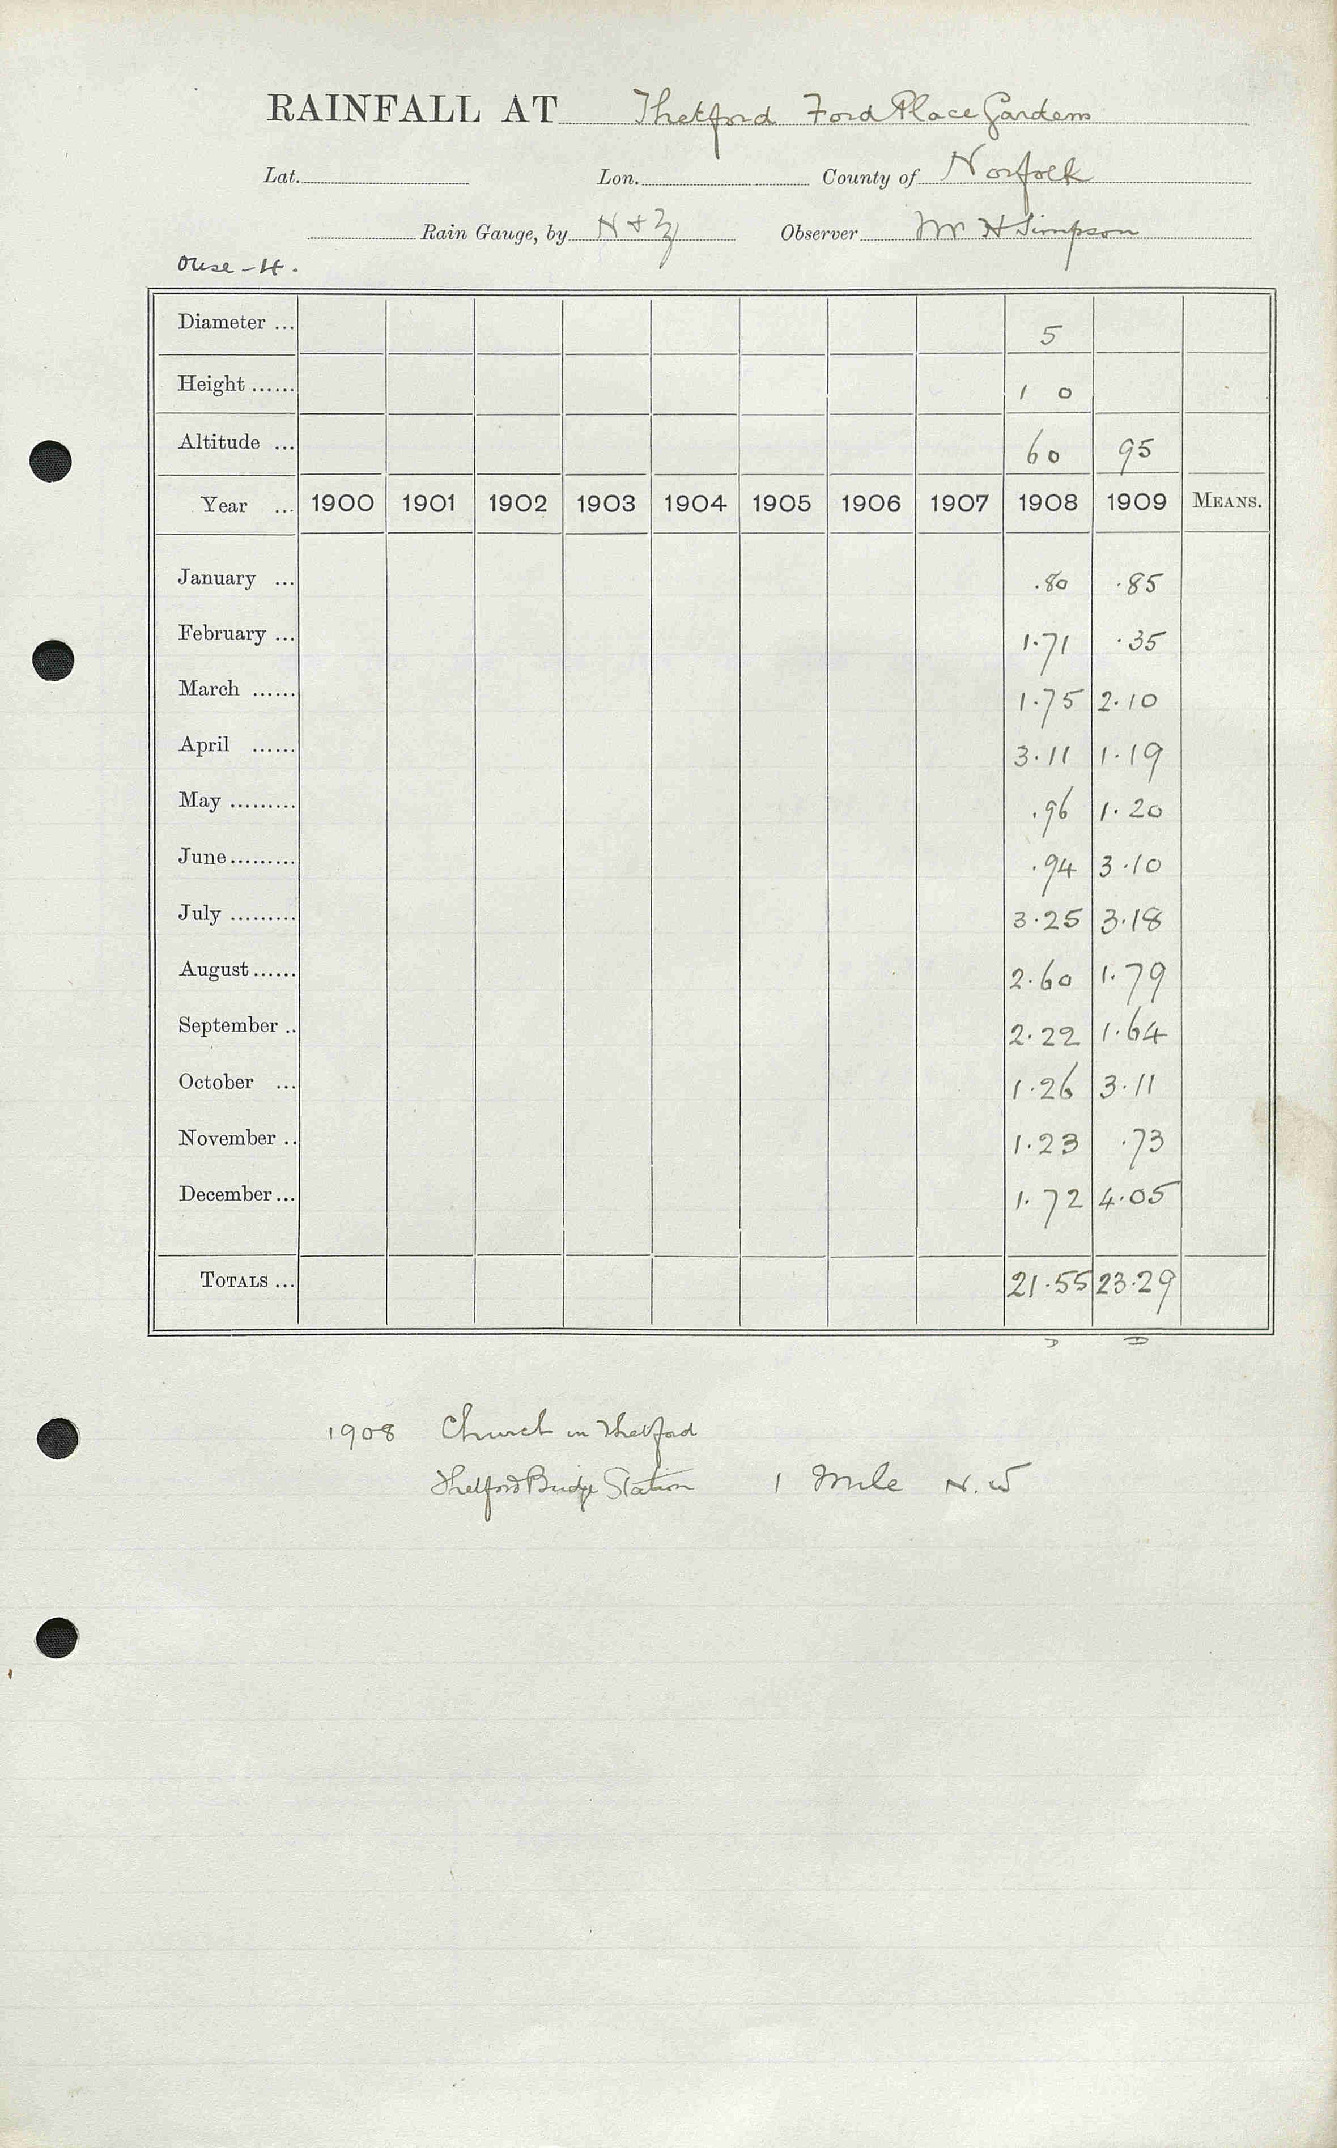 RAINFALL AT Thetford Ford Place Gardens
Lat. Lon. County of Norfolk
Rain Gauge, by N & Z Observer Mr H Simpson
Ouse - H.
Diameter ... 5
Height ...... 1 0
Altitude ... 60 95
Year ... 1900 1901 1902 1903 1904 1905 1906 1907 1908 1909 MEANS.
January ... .80 .85
February ... 1.71 .35
March ...... 1.75 2.10
April ...... 3.11 1.19
May ......... .96 1.20
June ......... .94 3.10
July ......... 3.25 3.18
August ...... 2.60 1.79
September .. 2.22 1.64
October ... 1.26 3.11
November .. 1.23 .73
December ... 1.72 4.05
TOTALS ... 21.55 23.29
1908 Church in Thetford
Thetford Bridge Station 1 Mile N.W